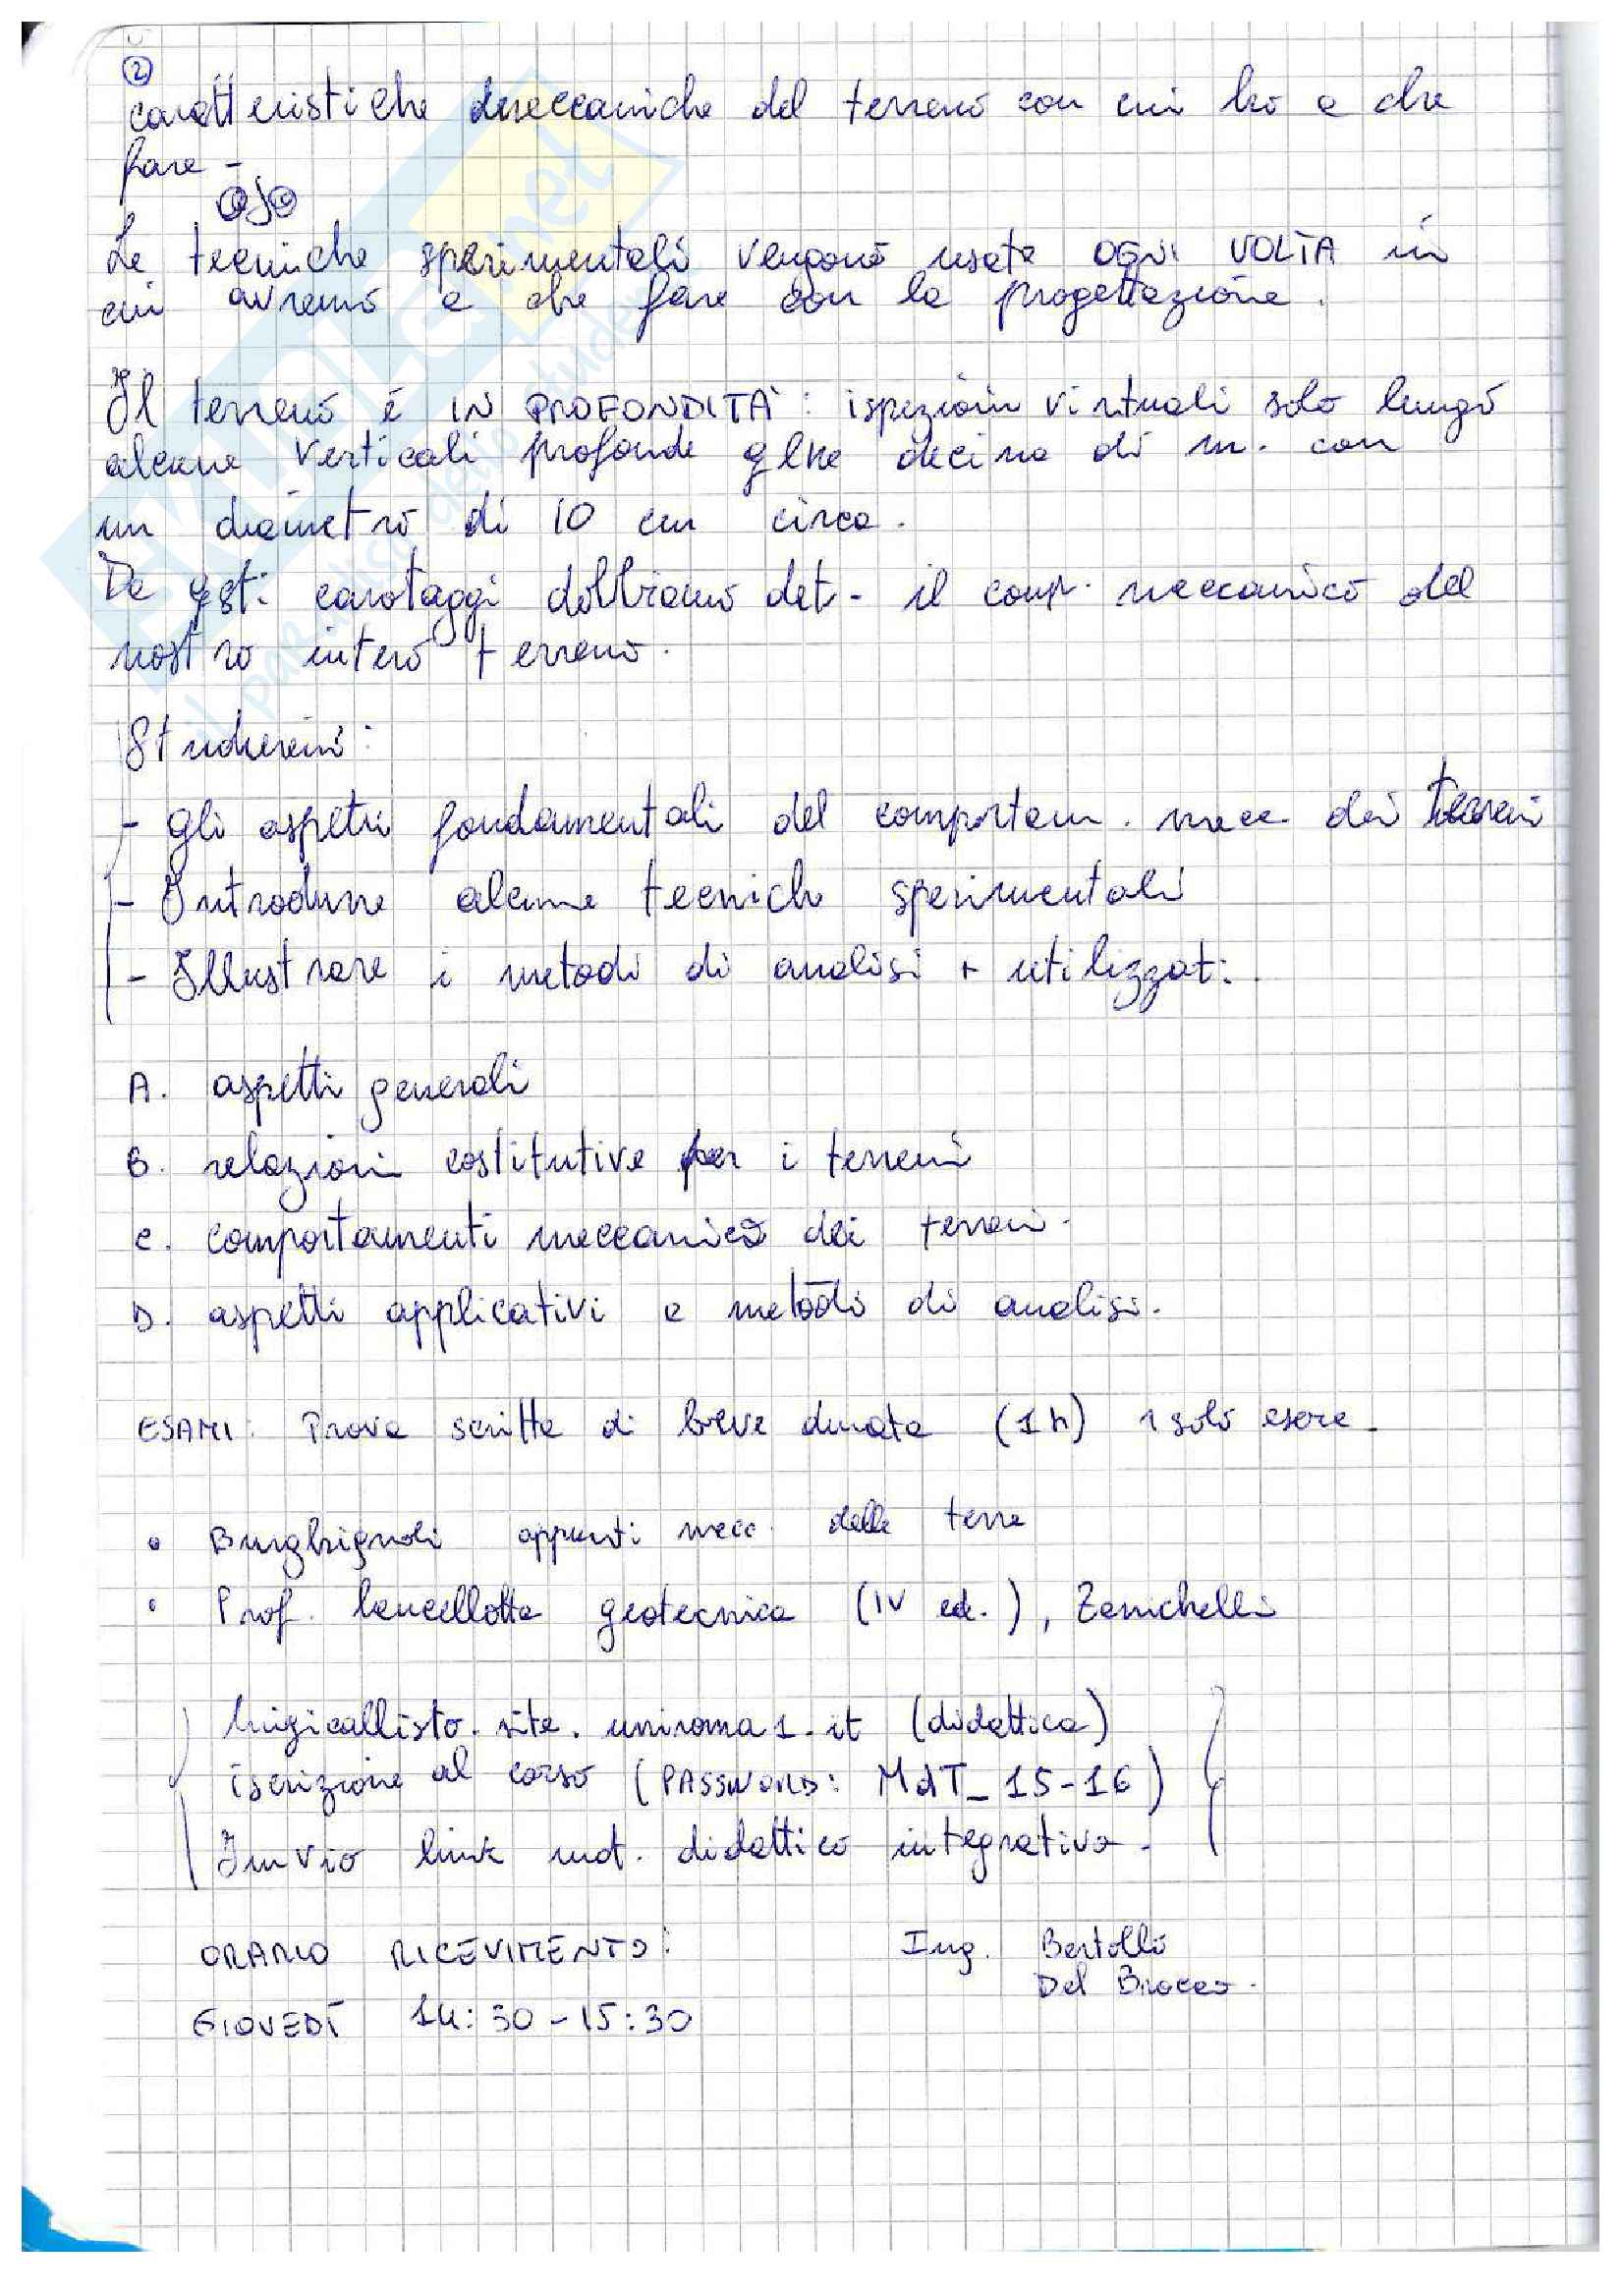 2
caratteristiche meccaniche del terreno con cui ho a che
fare -
Le tecniche sperimentali vengono usate OGNI VOLTA in
cui avremo a che fare con la progettazione.
Il terreno è IN PROFONDITÀ: ispezioni virtuali solo lungo
alcune verticali profonde qlke decina di m. con
un diametro di 10 cm circa.
Da qsti carotaggi dobbiamo det. il comp. meccanico del
nostro intero terreno.
Studieremo:
- gli aspetti fondamentali del comportam. mecc. dei terreni
- Introdurre alcune tecniche sperimentali
- Illustrare i metodi di analisi + utilizzati.
A. aspetti generali
B. relazioni costitutive per i terreni
C. comportamenti meccanico dei terreni.
D. aspetti applicativi e metodi di analisi.
ESAMI: Prova scritta di breve durata (1h) 1 solo eserc.
• Burghignoli appunti mecc. delle terre
• Prof. Lancellotta geotecnica (IV ed.), Zanichelli
luigicallisto.site.uniroma1.it (didattica)
iscrizione al corso (PASSWORD: MdT_15-16)
Invio link mat. didattico integrativo.
ORARIO RICEVIMENTO: Ing. Bertolli
Del Brocco.
GIOVEDÌ 14:30-15:30